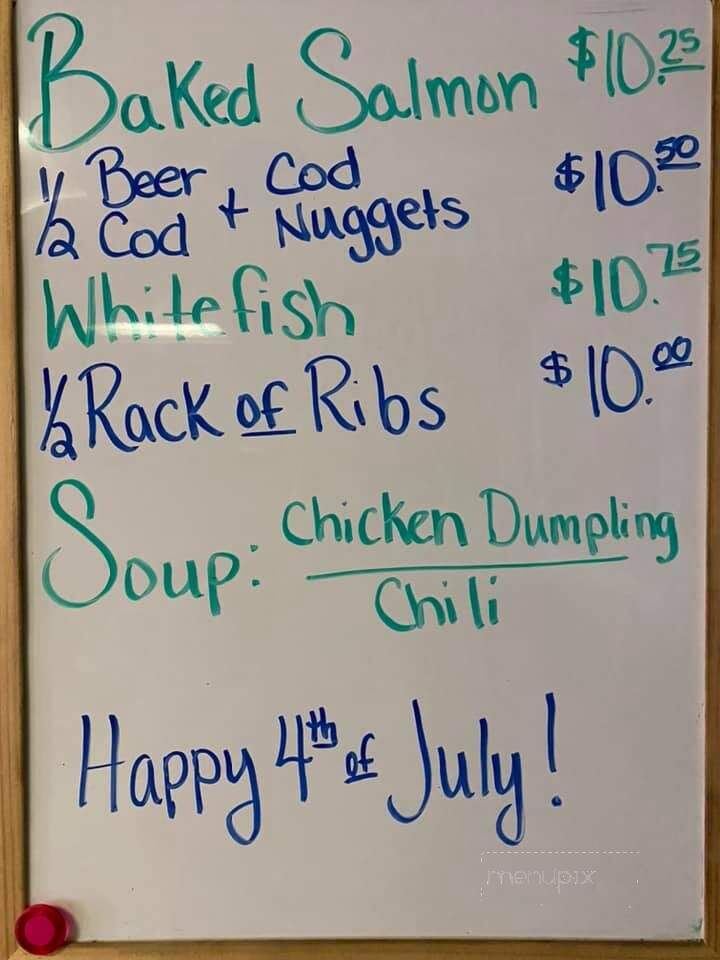 Baked Salmon $10.25
1/2 Beer Cod + Cod Nuggets $10.50
Whitefish $10.75
1/2 Rack of Ribs $10.00
Soup: Chicken Dumpling
Chili
Happy 4th of July!
menupix